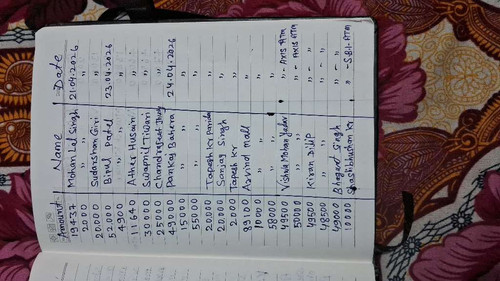 Amount Name Date
19437 Mohan Lal Singh 21.04.2026
2000 ,, ,,
20000 Sudarshan Giri ,,
52000 Bipul Patel 23.04.2026
4300 ,, ,,
11640 Ather Husain ,,
30000 Swapnil Tiwari ,,
25000 Chandrajeet ,,
49000 Pankaj Bahera 24.04.2026
15000 ,, ,,
55000 ,, ,,
20000 Tapesh kr pandey ,,
20000 Sanjay Singh ,,
2000 Tapesh kr ,,
89100 Arvind mall ,,
10000 ,, ,,
58000 ,, ,,
49500 Vishwa Mohan Yadav ,, - AXIS ATM
50000 ,, ,, - AXIS ATM
49500 Kiran DILIP ,, - ,,
48500 ,, ,, - ,,
49000 Bhagwat Singh ,, - ,,
10000 kr ,, - S.B.I. ATM